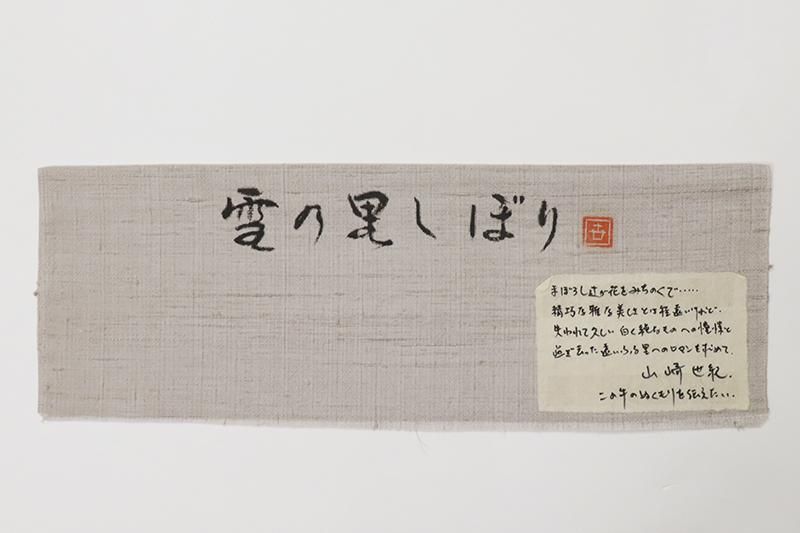 雪の里しぼり
まぼろし辻が花をみちのくで‥‥‥
精巧な雅な美しさとは程遠いけれど、
失われて久しい白く純なものへの憧憬と
過ぎ去った遠いふる里へのロマンを求めて。
山崎世紀
この手のぬくもりを伝えたい。